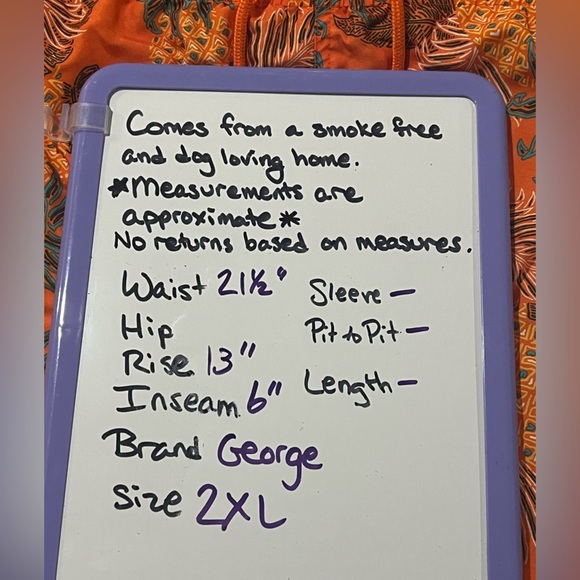 Comes from a smoke free
and dog loving home.
*Measurements are
approximate*
No returns based on measures.
Waist 21½"
Sleeve –
Hip
Pit to Pit –
Rise 13"
Length –
Inseam 6"
Brand George
Size 2XL